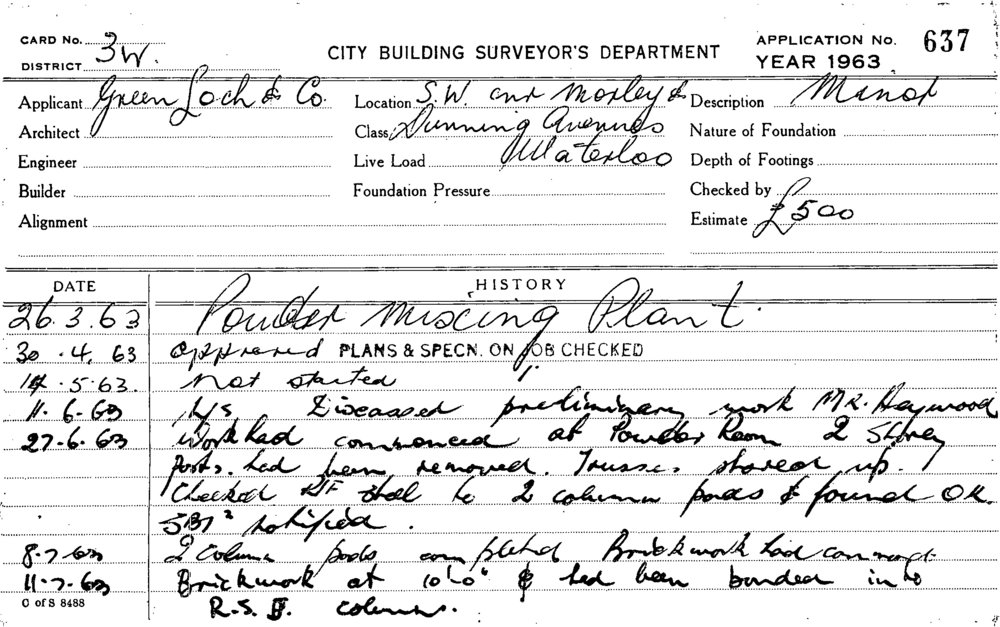 CARD No. 3W.
DISTRICT
CITY BUILDING SURVEYOR'S DEPARTMENT
APPLICATION No. 637
YEAR 1963
Applicant Green Loch & Co.
Location S.W. cnr Morley &
Description Minor
Architect
Class Dunning Avenues
Nature of Foundation
Engineer
Live Load Waterloo
Depth of Footings
Builder
Foundation Pressure
Checked by
Alignment
Estimate £500
DATE HISTORY
26.3.63 Powder Mixing Plant.
30.4.63 approved PLANS & SPECN. ON JOB CHECKED
14.5.63. Not started
11.6.63 Discussed preliminary work Mr. Haywood
27.6.63 Work had commenced at Powder Room 2 Storey
Posts. had been removed. Trusses shored up.
Checked R/F steel to 2 column pads & found OK.
notified.
8.7.63 2 column pads completed Brickwork had commenced.
11.7.63 Brickwork at 10'0" & had been bonded in to
C of S 8488
R.S.J. columns.